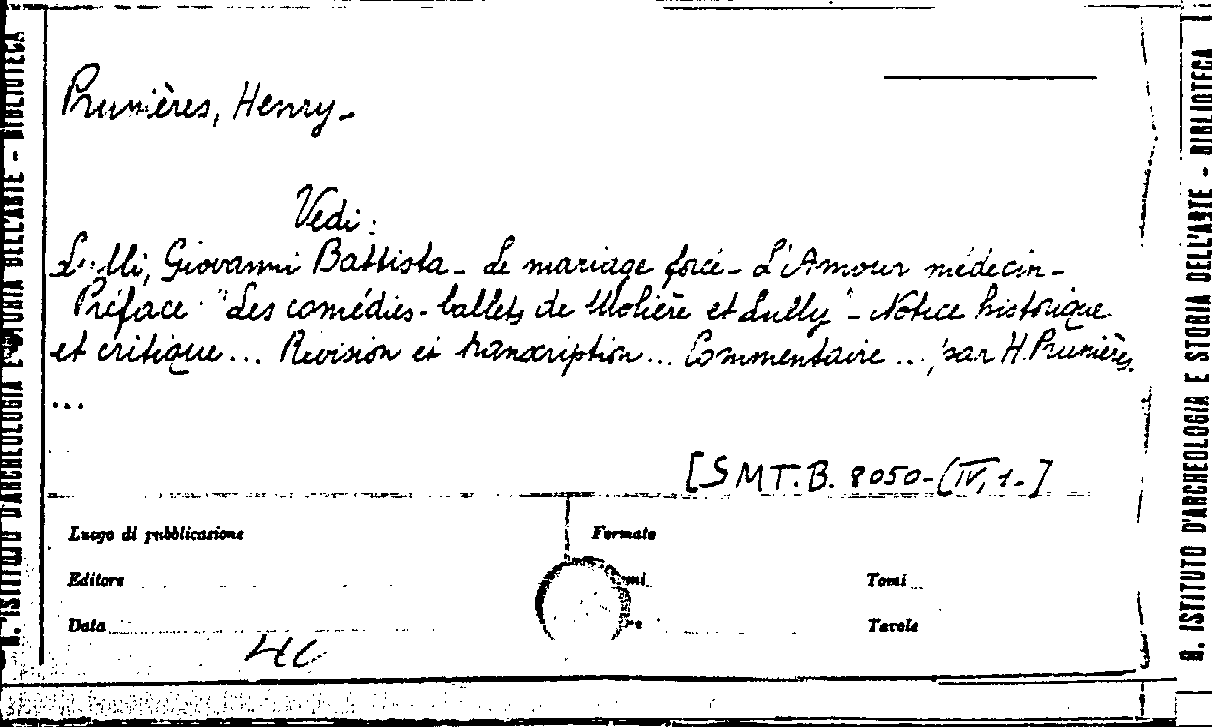 Prunières, Henry-
Vedi:
Lulli, Giovanni Battista- Le mariage forcé- L'Amour médecin-
Préface "Les comédies-ballets de Molière et Lully"- Notice historique
et critique... Revision et transcription... Commentaire... par H. Prunières.
...
[SMT.B. 8050-(IV, 1.-]
Luogo di pubblicazione
Formato
Editore
Tomi
Data
Tavole
R. ISTITUTO D'ARCHEOLOGIA E STORIA DELL'ARTE - BIBLIOTECA
R. ISTITUTO D'ARCHEOLOGIA E STORIA DELL'ARTE - BIBLIOTECA